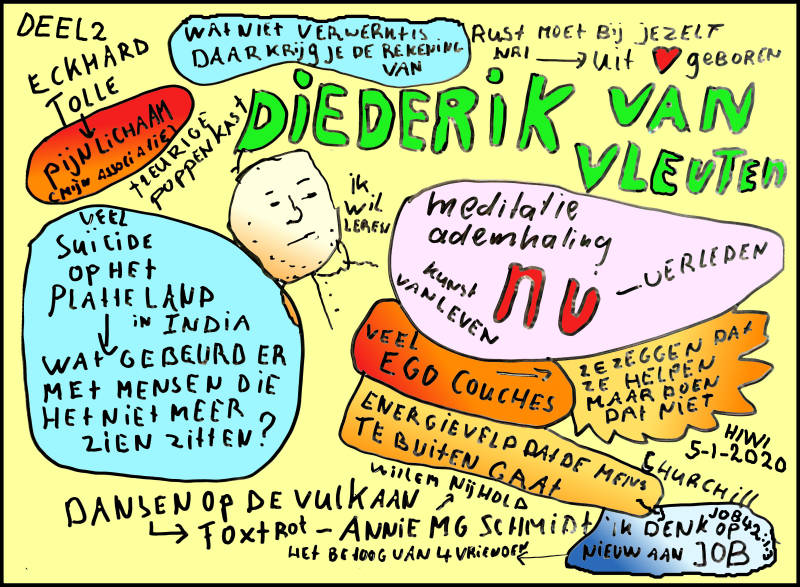 DEEL 2
ECKHARD
TOLLE
PIJNLICHAAM
(MIJN ASSOCIATIE)
tREURIGE
POPPENKAST
WAT NIET VERWERKT IS
DAAR KRIJG JE DE REKENING
VAN
RUST MOET BIJ JEZELF
uit ♥ geboren
DIEDERIK VAN
VLEUTEN
ik
WIL
LEREN
meditatie
ademhaling
KUNST
VAN LEVEN
NU
VERLEDEN
VEEL
SUÏCIDE
OP HET
PLATTELAND
in INDIA
WAT GEBEURD ER
MET MENSEN DIE
HET NIET MEER
ZIEN ZITTEN?
VEEL
EGO COUCHES
ZE ZEGGEN DAT
ZE HELPEN
MAAR DOEN
DAT NIET
ENERGIEVELD DAT DE MENS
TE BUITEN GAAT
HIWI
5-1-2020
WILLEM NIJHOLD
DANSEN OP DE VULKAAN
FOXTROT - ANNIE MG SCHMIDT
HET BETOOG VAN 4 VRIENDEN
CHURCHILL
IK DENK OP
NIEUW AAN JOB